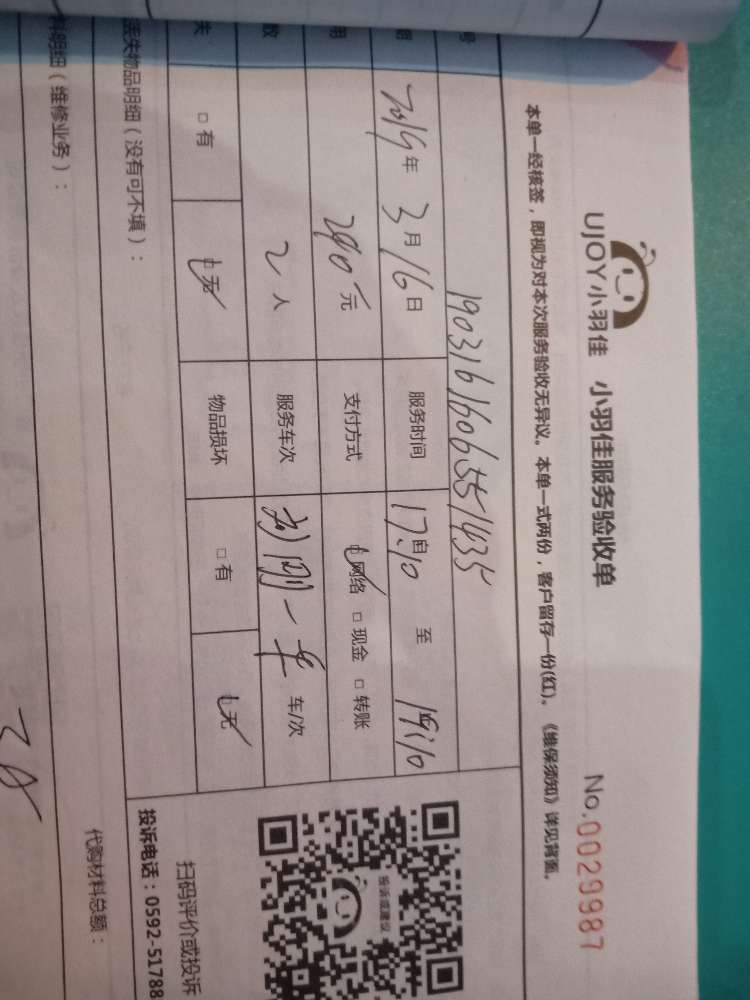 UJOY小羽佳 小羽佳服务验收单 No.0029987
本单一经核签，即视为对本次服务验收无异议。本单一式两份，客户留存一份(红)。《维保须知》详见背面。
号 1903161606551435
期 2019年 3月 16日 服务时间 自17:10 至 19:10
用 240元 支付方式 网络 □ 现金 □ 转账
数 2人 服务车次 一车 车/次
失 □ 有 无 物品损坏 □ 有 无
丢失物品明细（没有可不填）：
料明细（维修业务）：
代购材料总额：
投诉或建议
扫码评价或投诉
投诉电话：0592-51788